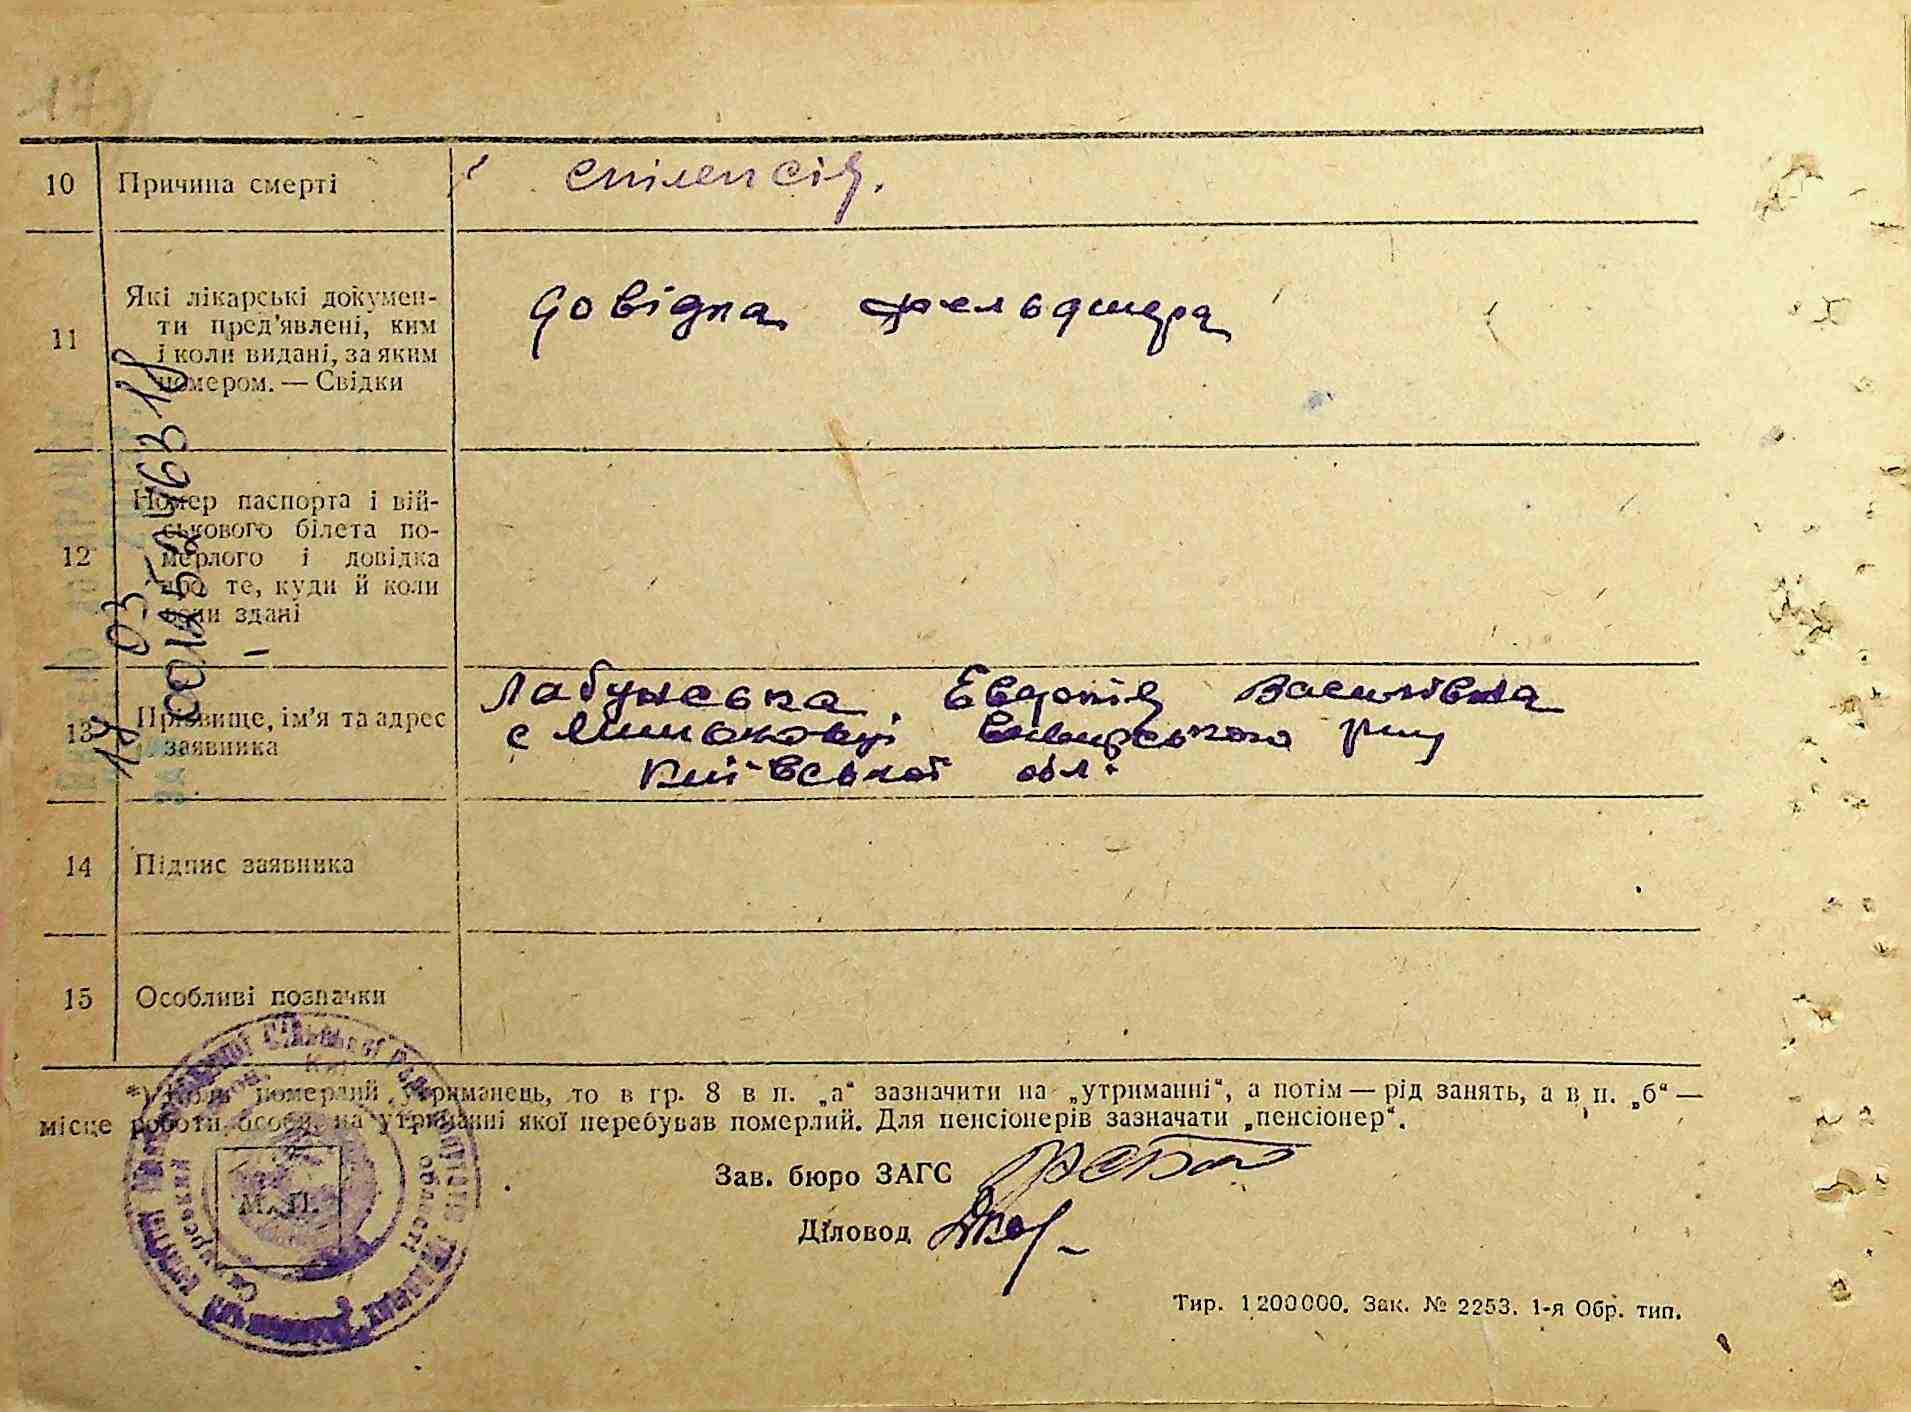 10 Причина смерті епілепсія.
11 Які лікарські докумен-
ти пред'явлені, ким
і коли видані, за яким
номером. — Свідки
довідка фельдшера
12 Номер паспорта і вій-
ськового білета по-
мерлого і довідка
про те, куди й коли
вони здані
13 Прізвище, ім'я та адрес
заявника
Лабунська Евдокія Василівна
с Миньковці р-ну
Київської обл.
14 Підпис заявника
15 Особливі позначки
*) Коли померлий утриманець, то в гр. 8 в п. „а“ зазначити на „утриманні“, а потім — рід занять, а в п. „б“ —
місце роботи особи, на утриманні якої перебував померлий. Для пенсіонерів зазначати „пенсіонер“.
М. П.
Зав. бюро ЗАГС
Діловод
Тир. 1200000. Зак. № 2253. 1-я Обр. тип.